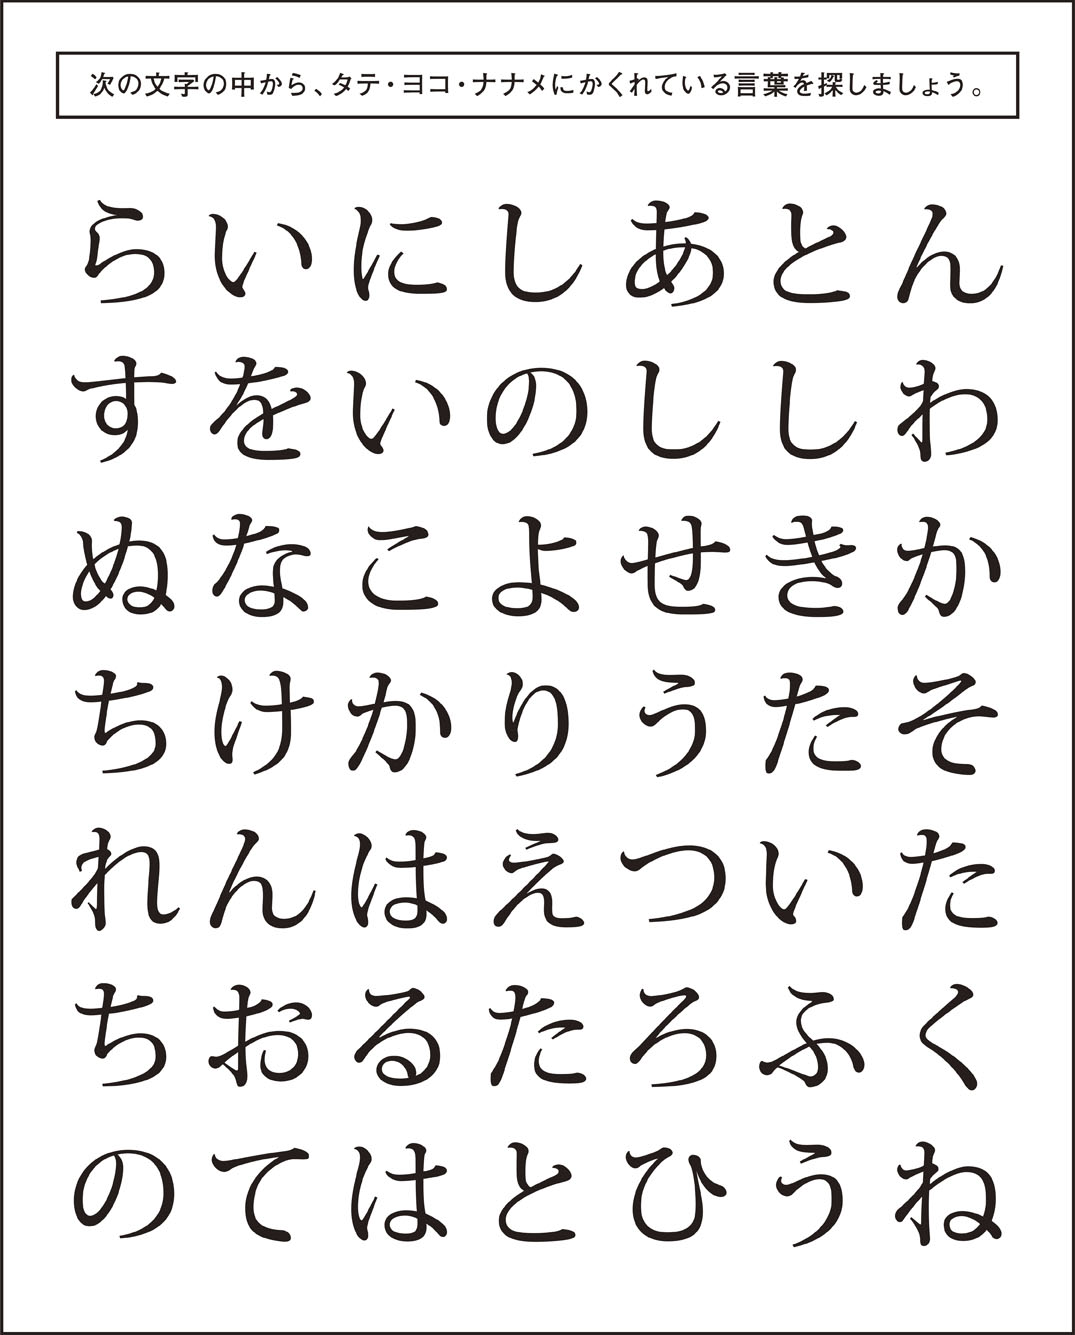 次の文字の中から、タテ・ヨコ・ナナメにかくれている言葉を探しましょう。
らいにしあとん
すをいのししわ
ぬなこよせきか
ちけかりうたそ
れんはえついた
ちおるたろふく
のてはとひうね